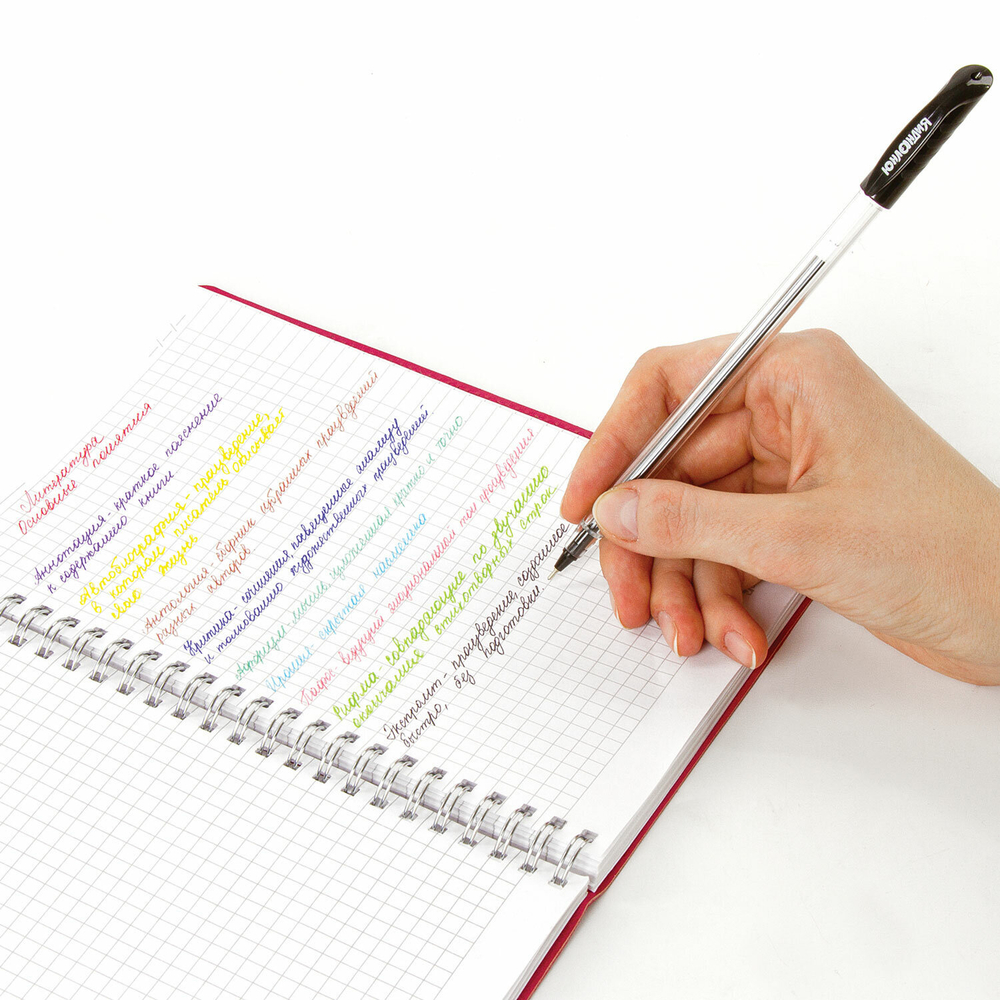 Литература
Основные понятия
Аннотация - краткое пояснение
к содержанию книги
Автобиография - произведение,
в котором писатель описывает
свою жизнь
Антология - сборник избранных произведений
разных авторов
Критика - сочинения, посвященные анализу
и толкованию художественных произведений
Афоризм - мысль, изложенная кратко и точно
Ирония - скрытая насмешка
Пафос - ведущий эмоциональный тон произведения
Рифма - совпадающие по звучанию
окончания стихотворных строк
Экспромт - произведение, созданное
быстро, без подготовки.
ЮНЛАНДИЯ